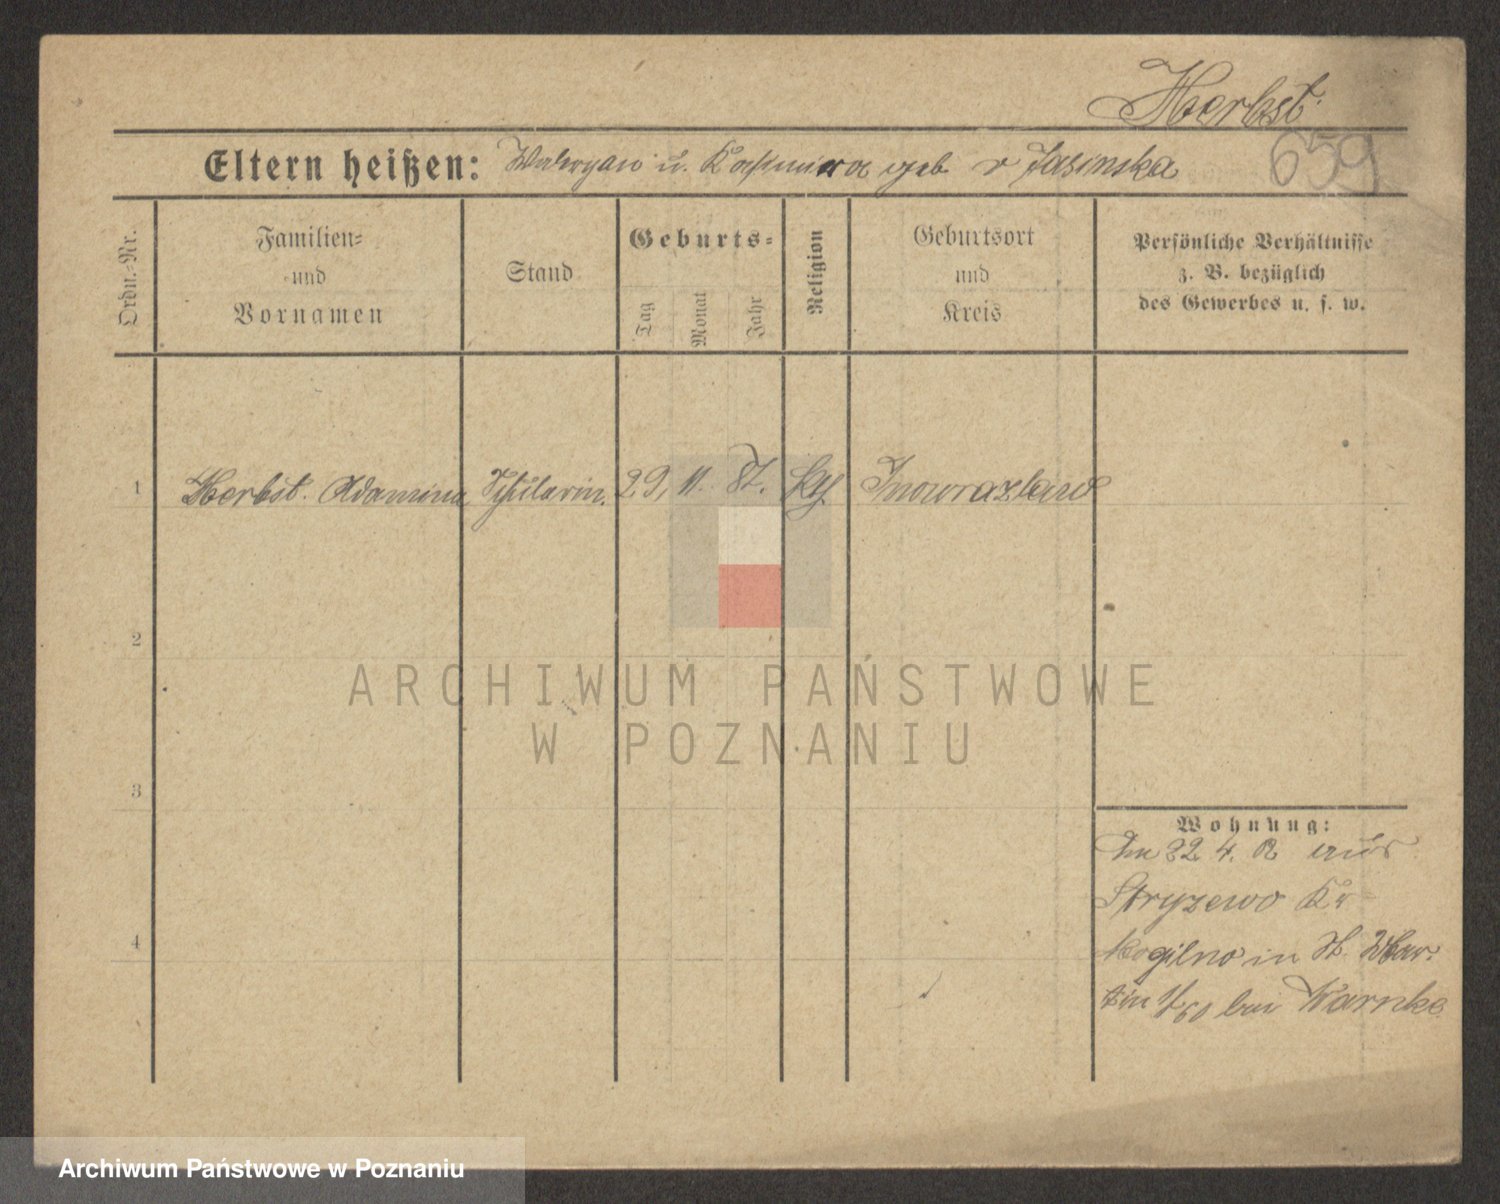 Herbst.
Eltern heißen: Waleryan u. Kasimira geb v Jasinska
659
Ordn.-Nr.
Familien-
und
Vornamen
Stand
Geburts-
Tag
Monat
Jahr
Religion
Geburtsort
und
Kreis
Persönliche Verhältnisse
z. B. bezüglich
des Gewerbes u. s. w.
1 Herbst. Adamina Schülerin. 29. 11. 87. kth Inowrazlaw
2
ARCHIWUM PAŃSTWOWE
W POZNANIU
3
Wohnung:
4. aus
Stryzewo Kr
Mogilno in St.
tin bei Warnke
4
Archiwum Państwowe w Poznaniu